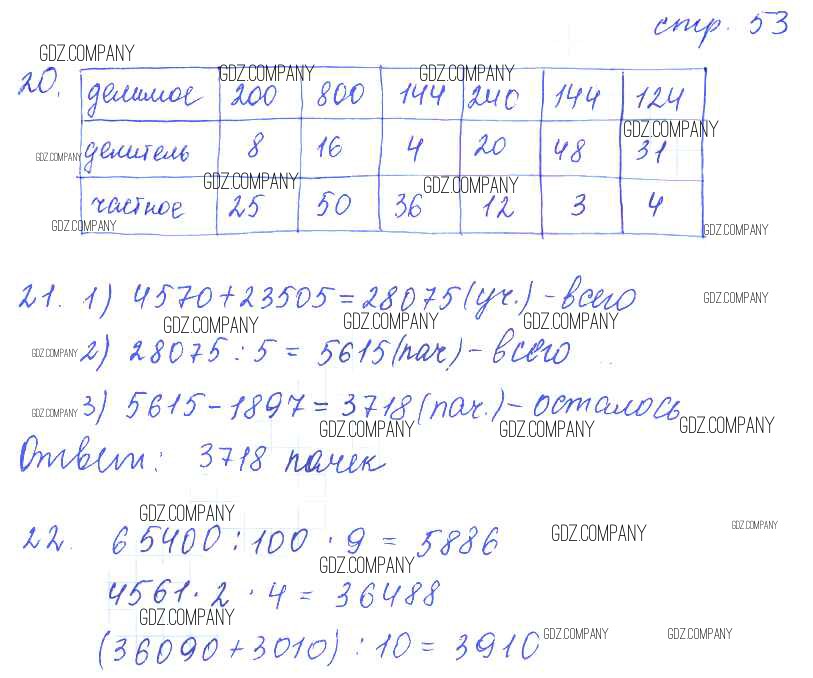 стр. 53
GDZ.COMPANY
20.
GDZ.COMPANY GDZ.COMPANY
делимое 200 800 144 240 144 124
GDZ.COMPANY
GDZ.COMPANY делитель 8 16 4 20 48 31
GDZ.COMPANY GDZ.COMPANY
частное 25 50 36 12 3 4
GDZ.COMPANY GDZ.COMPANY
21. 1) 4570+23505=28075(уч.) - всего GDZ.COMPANY
GDZ.COMPANY GDZ.COMPANY GDZ.COMPANY
GDZ.COMPANY 2) 28075 : 5 = 5615(пач) - всего
GDZ.COMPANY 3) 5615-1897=3718(пач.) - осталось
GDZ.COMPANY GDZ.COMPANY GDZ.COMPANY
Ответ: 3718 пачек
GDZ.COMPANY
22. 65400 : 100 · 9 = 5886 GDZ.COMPANY GDZ.COMPANY
GDZ.COMPANY
4561 · 2 · 4 = 36488
GDZ.COMPANY
(36090+3010) : 10 = 3910 GDZ.COMPANY GDZ.COMPANY